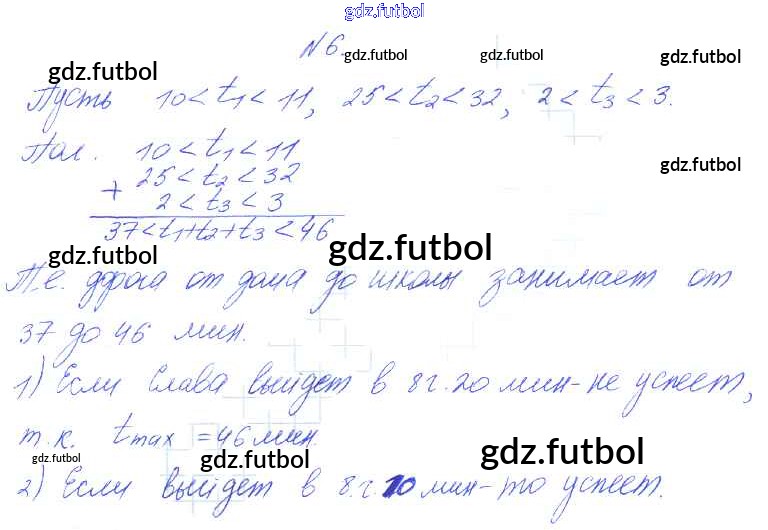 gdz.futbol
№6. gdz.futbol gdz.futbol gdz.futbol
gdz.futbol
Пусть 10<t1<11, 25<t2<32, 2<t3<3.
Пол. 10<t1<11
gdz.futbol
25<t2<32
+ 2<t3<3
37<t1+t2+t3<46
gdz.futbol gdz.futbol
Т.е. дорога от дома до школы занимает от
37 до 46 мин.
1) Если Слава выйдет в 8г.20 мин-не успеет,
т.к. tmax =46мин.
gdz.futbol gdz.futbol gdz.futbol
2) Если выйдет в 8.г.10 мин-то успеет.